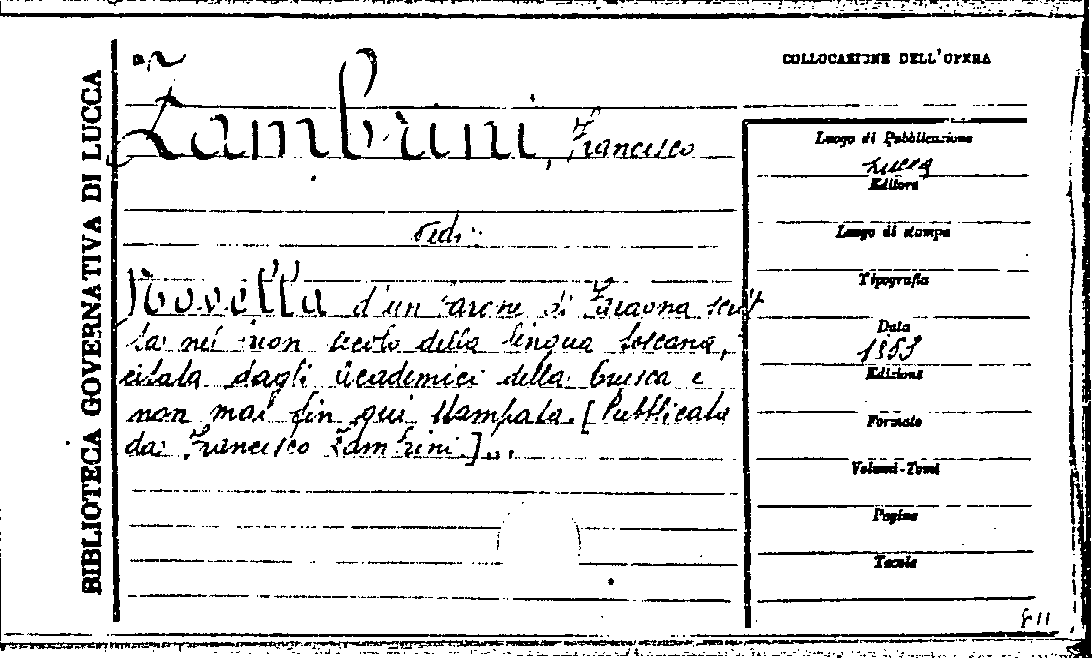 BIBLIOTECA GOVERNATIVA DI LUCCA
COLLOCAZIONE DELL'OPERA
Zambrini, Francesco
vedi:
Novella d'un barone di Faraona scrit
ta nel buon secolo della lingua toscana,
citata dagli Accademici della Crusca e
non mai fin qui stampata. [Pubblicata
da Francesco Zambrini]...
Luogo di Pubblicazione
Lucca
Editore
Luogo di stampa
Tipografia
Data
1853
Edizione
Formato
Volumi-Tomi
Pagine
Tavole